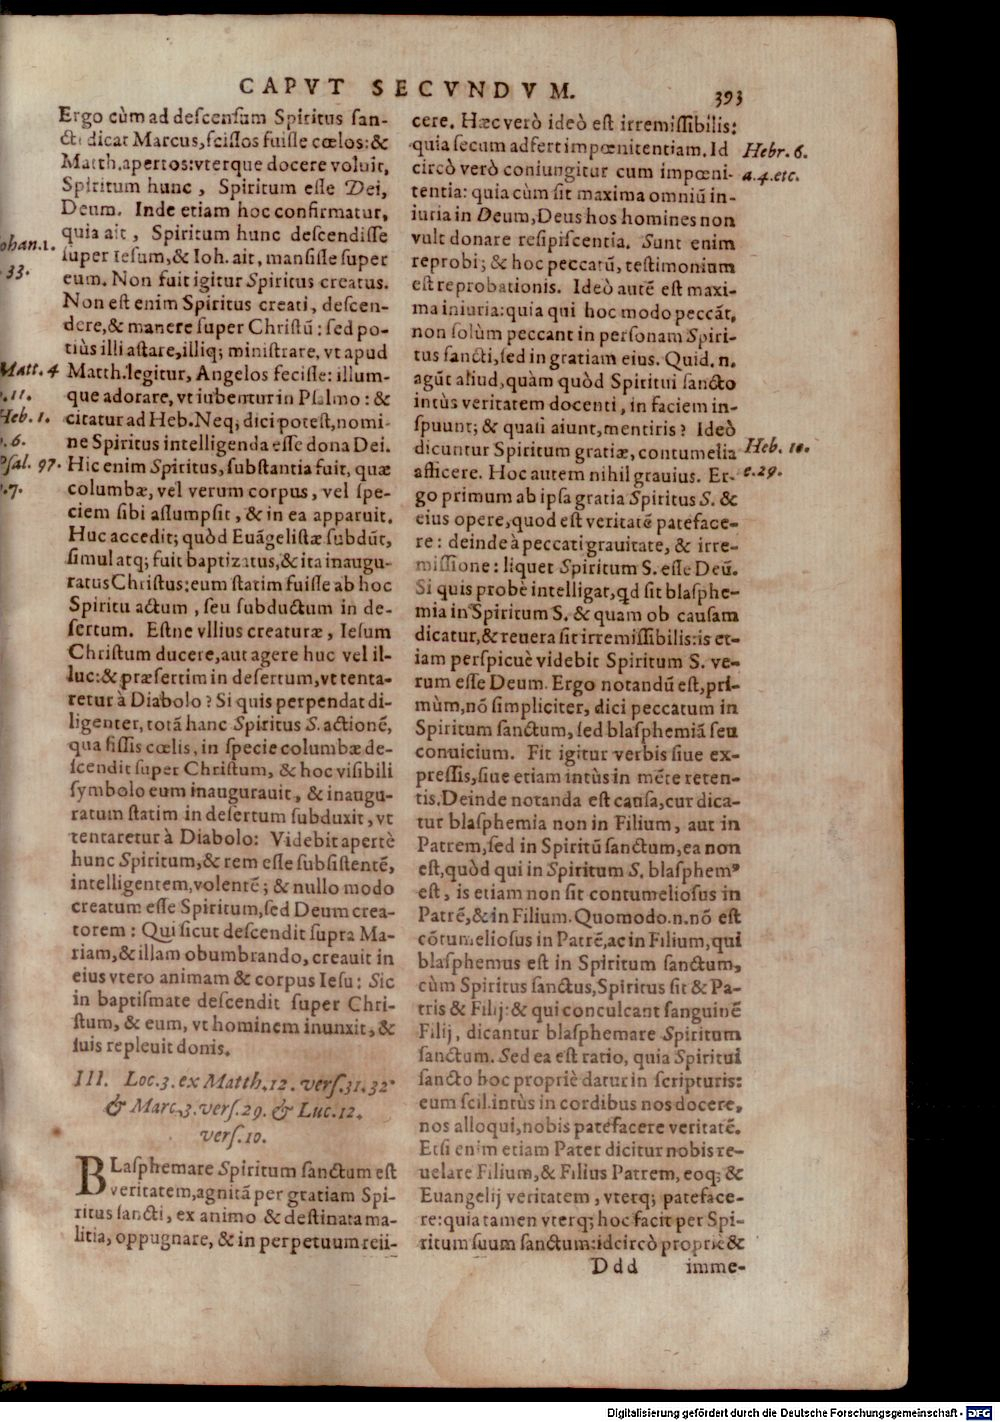 CAPVT SECVNDVM.
393
Ergo cùm ad descensum Spiritus san-
cti dicat Marcus, scissos fuisse cœlos: &
Matth. apertos: vterque docere voluit,
Spiritum hunc, Spiritum esse Dei,
Deum. Inde etiam hoc confirmatur,
quia ait, Spiritum hunc descendisse
super Iesum, & Ioh. ait, mansisse super
eum. Non fuit igitur Spiritus creatus.
Non est enim Spiritus creati, descen-
dere, & manere super Christū: sed po-
tiùs illi astare, illiq; ministrare, vt apud
Matth. legitur, Angelos fecisse: illum-
que adorare, vt iubentur in Psalmo: &
citatur ad Heb. Neq; dici potest, nomi-
ne Spiritus intelligenda esse dona Dei.
Hic enim Spiritus, substantia fuit, quæ
columbæ, vel verum corpus, vel spe-
ciem sibi assumpsit, & in ea apparuit.
Huc accedit; quòd Euāgelistæ subdūt,
simul atq; fuit baptizatus, & ita inaugu-
ratus Christus: eum statim fuisse ab hoc
Spiritu actum, seu subductum in de-
sertum. Estne vllius creaturæ, Iesum
Christum ducere, aut agere huc vel il-
luc: & præsertim in desertum, vt tenta-
retur à Diabolo? Si quis perpendat di-
ligenter, totā hanc Spiritus S. actionē,
qua fissis cœlis, in specie columbæ de-
scendit super Christum, & hoc visibili
symbolo eum inaugurauit, & inaugu-
ratum statim in desertum subduxit, vt
tentaretur à Diabolo: Videbit apertè
hunc Spiritum, & rem esse subsistentē,
intelligentem, volentē; & nullo modo
creatum esse Spiritum, sed Deum crea-
torem: Qui sicut descendit supra Ma-
riam, & illam obumbrando, creauit in
eius vtero animam & corpus Iesu: Sic
in baptismate descendit super Chri-
stum, & eum, vt hominem inunxit, &
suis repleuit donis.
III. Loc. 3. ex Matth. 12. vers. 31. 32.
& Marc. 3. vers. 29. & Luc. 12.
vers. 10.
BLasphemare Spiritum sanctum est
veritatem, agnitā per gratiam Spi-
ritus sancti, ex animo & destinata ma-
litia, oppugnare, & in perpetuum reii-
ohan. 1.
33.
Matt. 4
11.
Heb. 1.
6.
Psal. 97.
7.
cere. Hæc verò ideò est irremissibilis:
quia secum adfert impœnitentiam. Id
circò verò coniungitur cum impœni-
tentia: quia cùm sit maxima omniū in-
iuria in Deum, Deus hos homines non
vult donare resipiscentia. Sunt enim
reprobi; & hoc peccatū, testimonium
est reprobationis. Ideò autē est maxi-
ma iniuria: quia qui hoc modo peccāt,
non solùm peccant in personam Spiri-
tus sancti, sed in gratiam eius. Quid. n.
agūt aliud, quàm quòd Spiritui sancto
intùs veritatem docenti, in faciem in-
spuunt; & quasi aiunt, mentiris? Ideò
dicuntur Spiritum gratiæ, contumelia
afficere. Hoc autem nihil grauius. Er-
go primum ab ipsa gratia Spiritus S. &
eius opere, quod est veritatē pateface-
re: deinde à peccati grauitate, & irre-
missione: liquet Spiritum S. esse Deū.
Si quis probè intelligat, qd sit blasphe-
mia in Spiritum S. & quam ob causam
dicatur, & reuera sit irremissibilis: is et-
iam perspicuè videbit Spiritum S. ve-
rum esse Deum. Ergo notandū est, pri-
mùm, nō simpliciter, dici peccatum in
Spiritum sanctum, sed blasphemiā seu
conuicium. Fit igitur verbis siue ex-
pressis, siue etiam intùs in mēte reten-
tis. Deinde notanda est causa, cur dica-
tur blasphemia non in Filium, aut in
Patrem, sed in Spiritū sanctum, ea non
est, quòd qui in Spiritum S. blasphemꝰ
est, is etiam non sit contumeliosus in
Patrē, & in Filium. Quomodo. n. nō est
cōtumeliosus in Patrē, ac in Filium, qui
blasphemus est in Spiritum sanctum,
cùm Spiritus sanctus, Spiritus sit & Pa-
tris & Filij: & qui conculcant sanguinē
Filij, dicantur blasphemare Spiritum
sanctum. Sed ea est ratio, quia Spiritui
sancto hoc propriè datur in scripturis:
eum scil. intùs in cordibus nos docere,
nos alloqui, nobis patefacere veritatē.
Etsi enim etiam Pater dicitur nobis re-
uelare Filium, & Filius Patrem, eoq; &
Euangelij veritatem, vterq; pateface-
re: quia tamen vterq; hoc facit per Spi-
ritum suum sanctum: idcircò propriè &
Hebr. 6.
a. 4. etc.
Heb. 10.
e. 29.
Ddd imme-
Digitalisierung gefördert durch die Deutsche Forschungsgemeinschaft - DFG